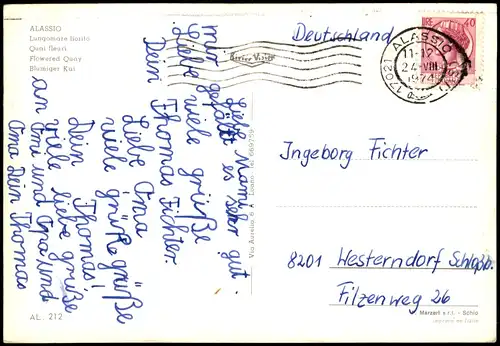 ALASSIO
Lungomare fiorito
Quai fleuri
Flowered Quay
Blumiger Kai
Deutschland
40
17021 ALASSIO
11-12
24-VIII
1974
Liebi Mami
mir gefällt es sehr gut.
Liebe viele grüße
Dein Thomas Fichter.
Liebe Oma
viele grüße grüße
Dein Thomas!
viele liebe grüße
an Omi und Opa und
Oma Dein Thomas
Ingeborg Fichter
8201 Westerndorf
Filzenweg 26
AL. 212
Marzari s.r.l. - Schio